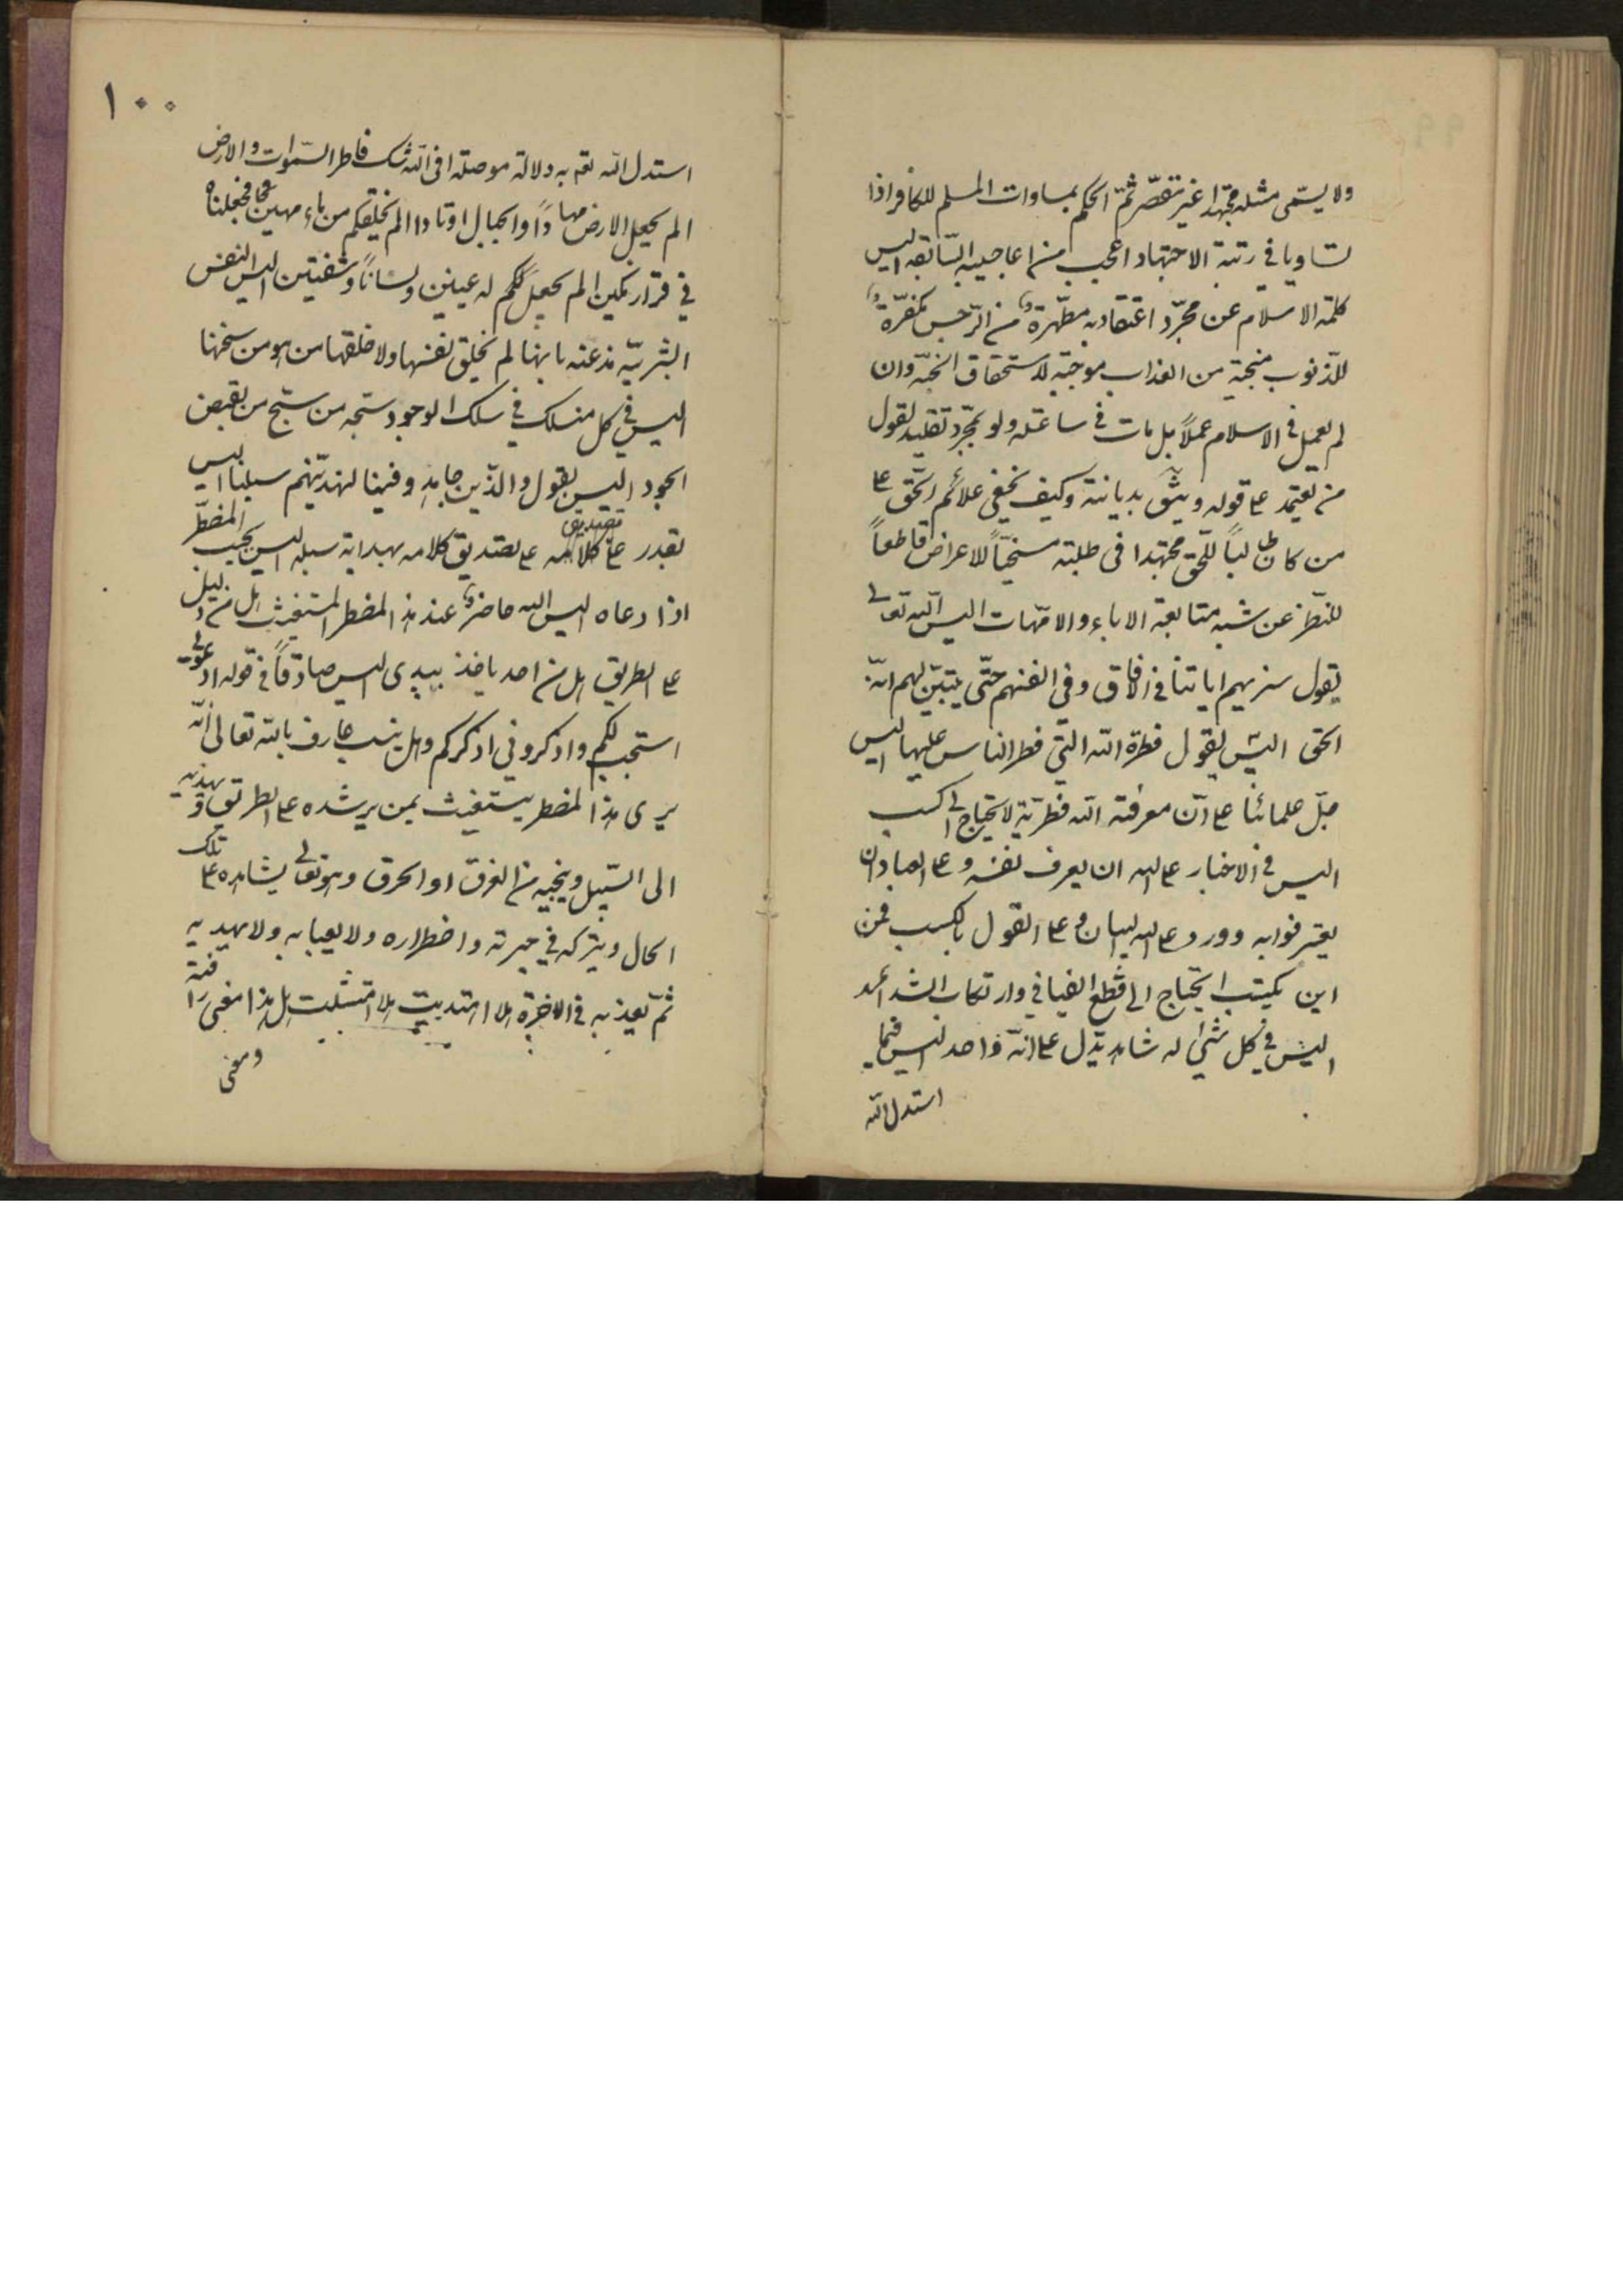 ولا يسمّى مثله مجتهدا غير مقصّر ثمّ الحكم بمساوات المسلم للكافر اذا
تساويا في رتبة الاجتهاد اعجب من اعاجيبه السّابقه اليس
كلمة الاسلام عن مجرّد اعتقاد به مطهّرة من الرّجس مكفّرة
للذنوب منجية من العذاب موجبة لاستحقاق الجنّة وان
لم يعمل في الاسلام عملاً بل مات في ساعته ولو بمجرّد تقليد لقول
من يعتمد على قوله ويثق بديانته وكيف يخفى علائم الحّق على
من كان طالباً للحّق مجتهدا في طلبته منحّياً للاعراض قاطعاً
للنّظر عن شبه متابعة الاباء والامّهات اليس الله تعالى
يقول سنريهم اياتنا في الافاق وفي انفسهم حتّى يتبيّن لهم انّه
الحق اليس يقول فطرة الله التي فطر الناس عليها اليس
جلّ علمائنا على انّ معرفة الله فطريّة لا يحتاج الى كسب
اليس في الاخبار على الله ان يعرف نفسه وعلى العباد ان
يعترفوا به وورد على الله البيان وعلى القول بالكسب فمن
اين يكتسب ايحتاج الى قطع الفيافي وارتكاب الشدائد
اليس في كل شئ له شاهد يدّل على انّه واحد اليس فيما
استدل الله
١٠٠
استدل الله تعم به دلالة موصلة افي الله شك فاطر السّموات والارض
الم يجعل الارض مهاداً والجبال اوتادا الم نخلقكم من ماء مهين فجعلناه
في قرار مكين الم يجعل لكم له عينين ولساناً وشفتين اليس النفس
البشريّه مذعنه بانها لم تخلق نفسها ولا خلقها من هو من سنخها
اليس في كل منسلك في سلك الوجود من بقبض
الجود اليس يقول والذّين جاهدوا فينا لنهدينّهم سبلنا اليس
يقدر على كلامه على تصديق كلامه بهداية سبله اليس يجيب المضطرّ
اذا دعاه اليس الله حاضراً عند هذا المضطر المستغيث هل من دليل
على الطريق هل من احد ياخذ بيدى اليس صادقاً في قوله ادعوني
استجب لكم واذكروني اذكركم وهل ينسب عارف بالله تعالى انّه
يرى هذا المضطر يستغيث بمن يرشده على الطريق ويهديه
الى السّبيل وينجيه من الغرق او الحرق وهو تعالى يشاهده على تلك
الحال ويتركه في حيرته واضطراره ولا يعبا به ولا يهديه
ثمّ يعذبه في الاخرة هلا اهتديت هلا امتثلت هل هذا معنى رافته
ومعنى